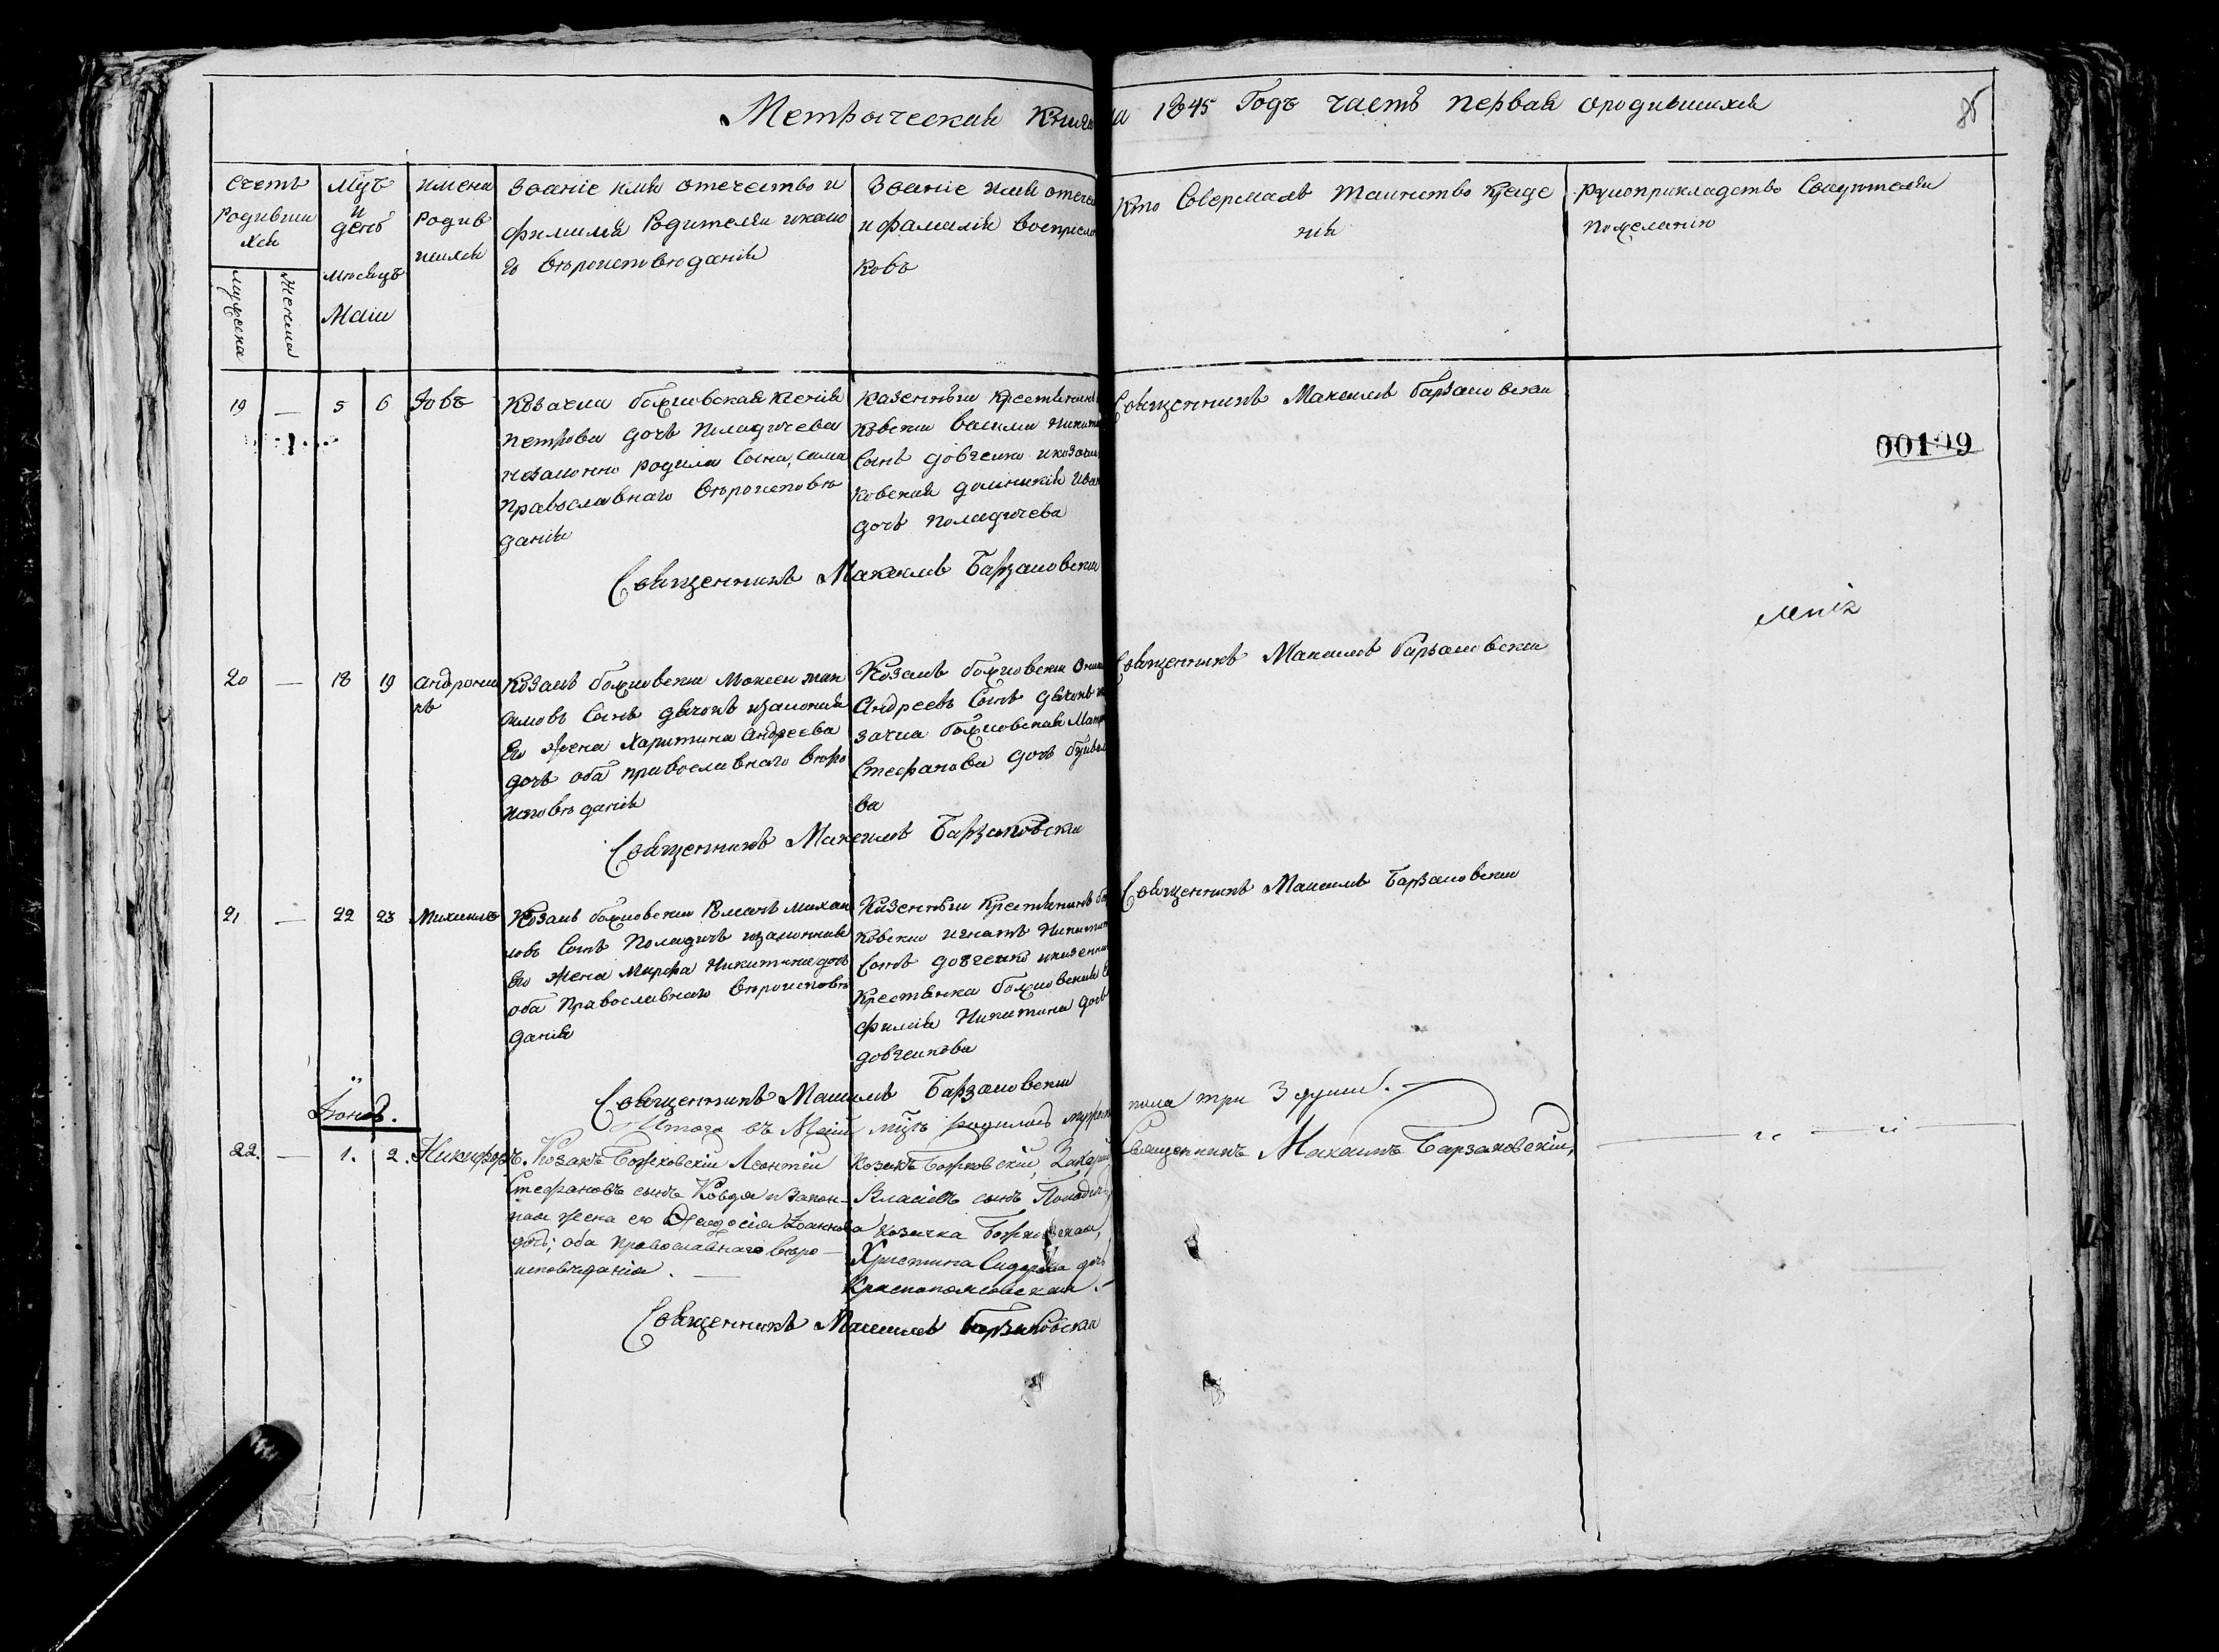 Метрическая Книга на 1845 Годъ часть первая ородившихся
85
Счетъ
Родивши
хся
мужеска
Женска
мцъ
и
день
мѣсяцъ
Маій
имена
Родив
шихся
Званіе имя отечество и
фамилия Родителей икако
го вѣроисповѣданія
Званіе имя отече
и фамилія воспреемни
ковъ
Кто Совершалъ таинство Креще
нія
рукоприкладство Свидетелей
пожеланію
19 — 5 6 Іовъ
Козачка божковская Ксенія
петрова дочь Поладичева
незаконно родила Сына, сама
православнаго вѣроисповѣ
данія
казенный крестянинъ
ковский василий Никити
Сынъ довченко икозачка
ковская Иван
дочь поладичева
Священникъ Максимъ Барзаковски
00109
Священникъ Максимъ Барзаковски
20 — 18 19 андрони
къ
Козакъ божковски Моисеи мак
симовъ Сынъ дяконъ изаконая
Его жена Харитина андреева
дочь оба православнаго вѣро
исповѣданія
Козакъ божковски
Андреевъ Сынъ дяконъ
зачка божковская
Стефанова дочь
ва
Священникъ Максимъ Барзаковски
Священникъ Максимъ Барзаковски
21 — 22 23 Михаилъ
Козакъ божковски Романъ михаи
ловъ Сынъ Поладичъ изаконная
Его жена Марфа Никитина дочь
оба Православнаго вѣроисповѣ
данія
Казенный Крестянинъ бож
ковски игнатъ Никитин
Сынъ довченко иказенная
Крестянка божковская
фимія Никитина дочь
довченкова
Священникъ Максимъ Барзаковски
Священникъ Максимъ Барзаковски
Итого въ Маіи мцѣ родилось мужеск пола три 3 души.
Іюнь.
22. — 1. 2. Никифоръ.
Козакъ Божковскій Леонтій
Стефановъ сынъ Ковда и Закон-
ная жена его Ѳеодосія Іоаннова
дочь; оба православнаго вѣро-
исповѣданія.
Козакъ Божковскій, Захарій
Власіевъ сынъ Поладичъ,
козачка Божковская,
Христина Сидорова дочь
Краснопольская.
Священникъ Максимъ Барзаковскій,
Священникъ Максимъ Барзаковски